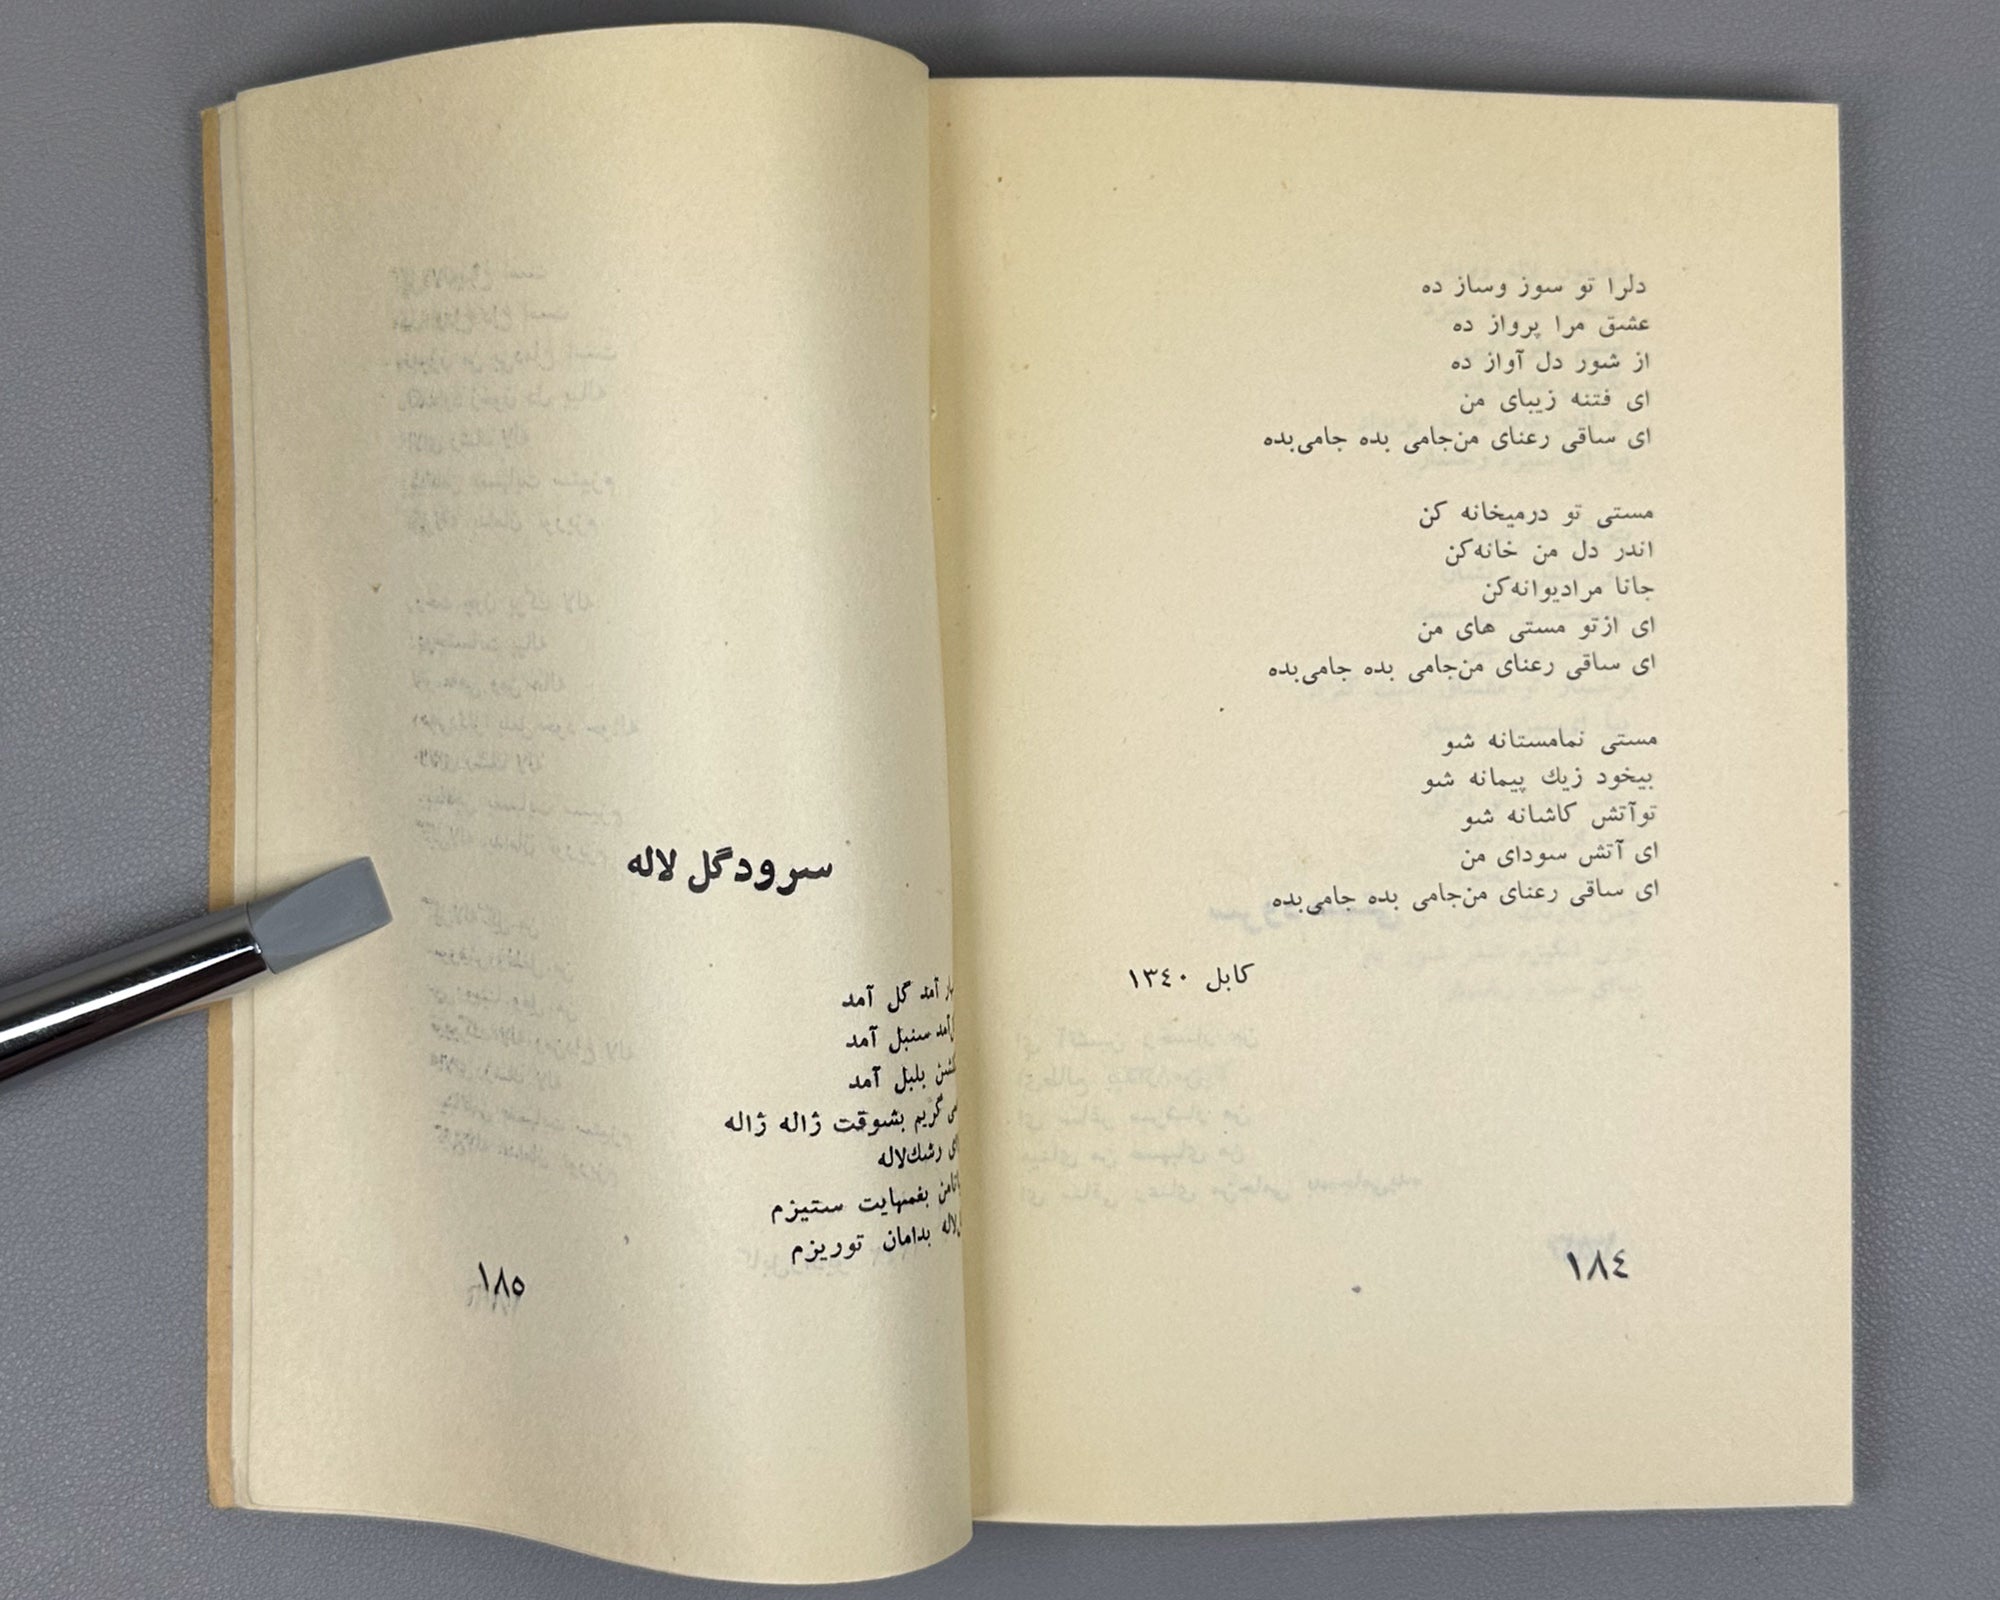 دلرا تو سوز وساز ده
عشق مرا پرواز ده
از شور دل آواز ده
ای فتنه زیبای من
ای ساقی رعنای من‌جامی بده جامی‌بده
مستی تو درمیخانه کن
اندر دل من خانه‌کن
جانا مرادیوانه‌کن
ای ازتو مستی های من
ای ساقی رعنای من‌جامی بده جامی‌بده
مستی نمامستانه شو
بیخود زیك پیمانه شو
توآتش کاشانه شو
ای آتش سودای من
ای ساقی رعنای من‌جامی بده جامی‌بده
کابل ۱۳٤۰
۱۸٤
سرودگل لاله
آمد گل آمد
سنبل آمد
بلبل آمد
گریم بشوقت ژاله ژاله
رشك‌لاله
بغمهایت ستیزم
بدامان توریزم
۱۸۵